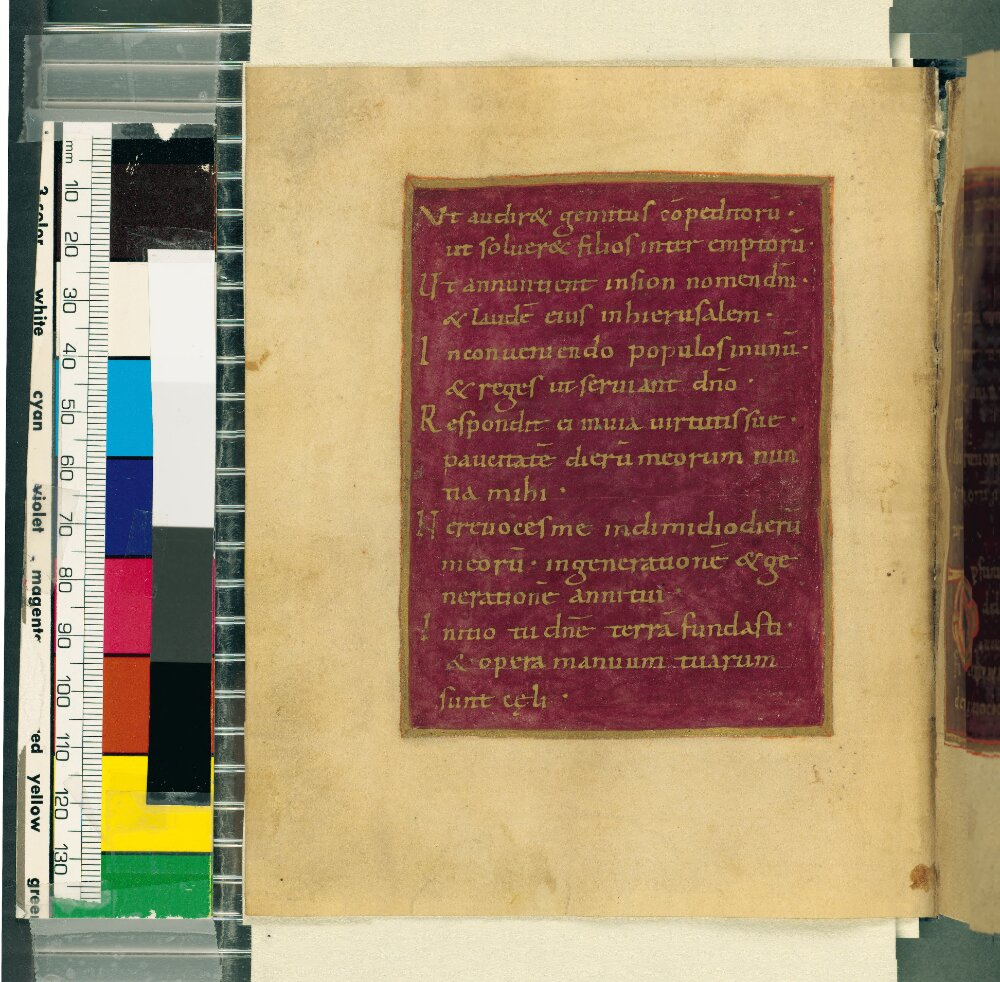 Ut audir& gemitus cōpeditorū·
ut soluer& filios inter emptorū·
Ut annuntient insion nomen dn̄i·
& laudē eius inhierusalem·
Inconueniendo populos inunū·
& reges ut seruiant dn̄o·
Respondit ei inuia uirtutis sue·
paucitatē dierū meorum nun
tia mihi·
Nereuocesme indimidio dierū
meorū· ingenerationē & ge
nerationē anni tui·
Initio tu dn̄e terrā fundasti·
& opera manuum tuarum
sunt cęli·
mm
10
20
30
40
50
60
70
80
90
100
110
120
130
white
cyan
violet
magent
ed
yellow
gree